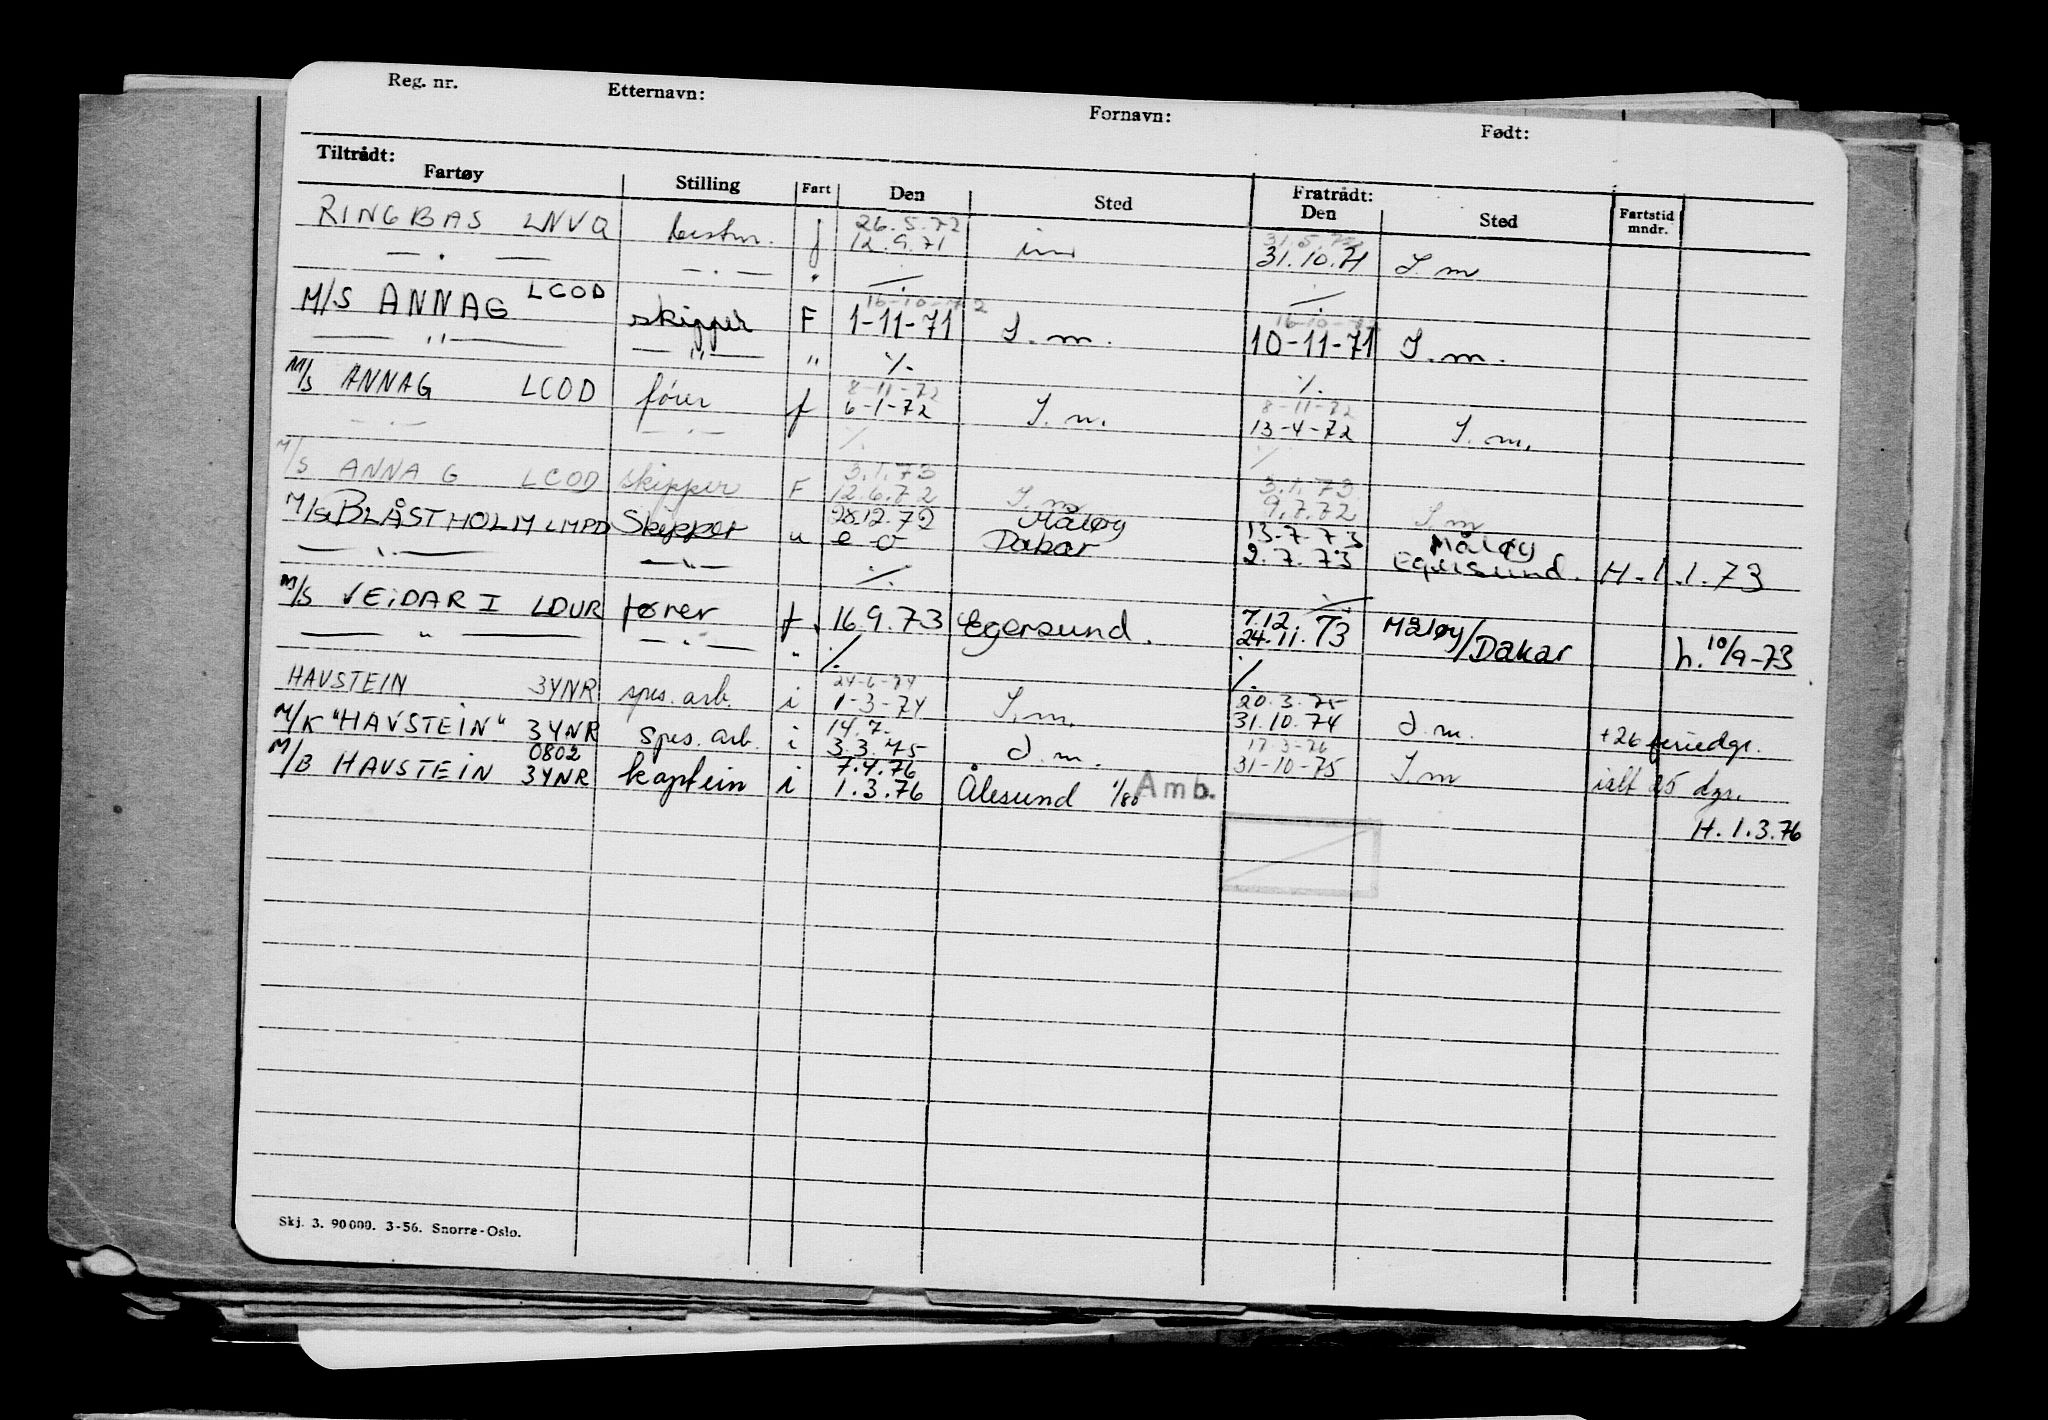 Reg. nr. Etternavn: Fornavn: Født:
Tiltrådt: Fratrådt:
Fartøy Stilling Fart Den Sted Den Sted Fartstid mndr.
26.5.72 31.5.72
RINGBAS LNVQ bestm. f 12.9.71 im 31.10.71 I.m
— . — — . — " ·/. ·/.
16-10-72 16-10-72
M/S ANNAG LCOD skipper F 1-11-71 I.m. 10-11-71 I.m.
— " — — " — " ·/. ·/.
8-11-72 8-11-72
M/S ANNAG LCOD fører f 6-1-72 I.m. 13-4-72 I.m.
— . — — . — ·/. ·/.
3.1.73 3.1.73
M/S ANNA G LCOD skipper F 12.6.72 I.m 9.7.72 I.m
M/S BLÅSTHOLM LMPD Skipper u 28.12.72 Måløy 13-7-73 Måløy
— " — — " — e o Dakar 2.7.73 Egersund. H. 1.1.73
·/. ·/.
M/S VEIDAR I LDUR fører f. 16.9.73 Egersund. 7.12. 24.11.73 Måløy/Dakar h. 10/9-73
— " — — " — " ·/. ·/.
24-6-74 20.3.75
HAVSTEIN 3YNR spes. arb. i 1-3-74 I.m. 31.10.74 d.m. +26 feriedgr.
14.7- 17-3-76
M/K "HAVSTEIN" 3YNR spes. arb. i 3.3.75 d.m. 31-10-75 I m ialt 25 dgr.
0802 7.4.76
M/B HAVSTEIN 3YNR kaptein i 1.3.76 Ålesund 1/80 Amb.
H. 1.3.76
Skj. 3. 90000. 3-56. Snorre-Oslo.